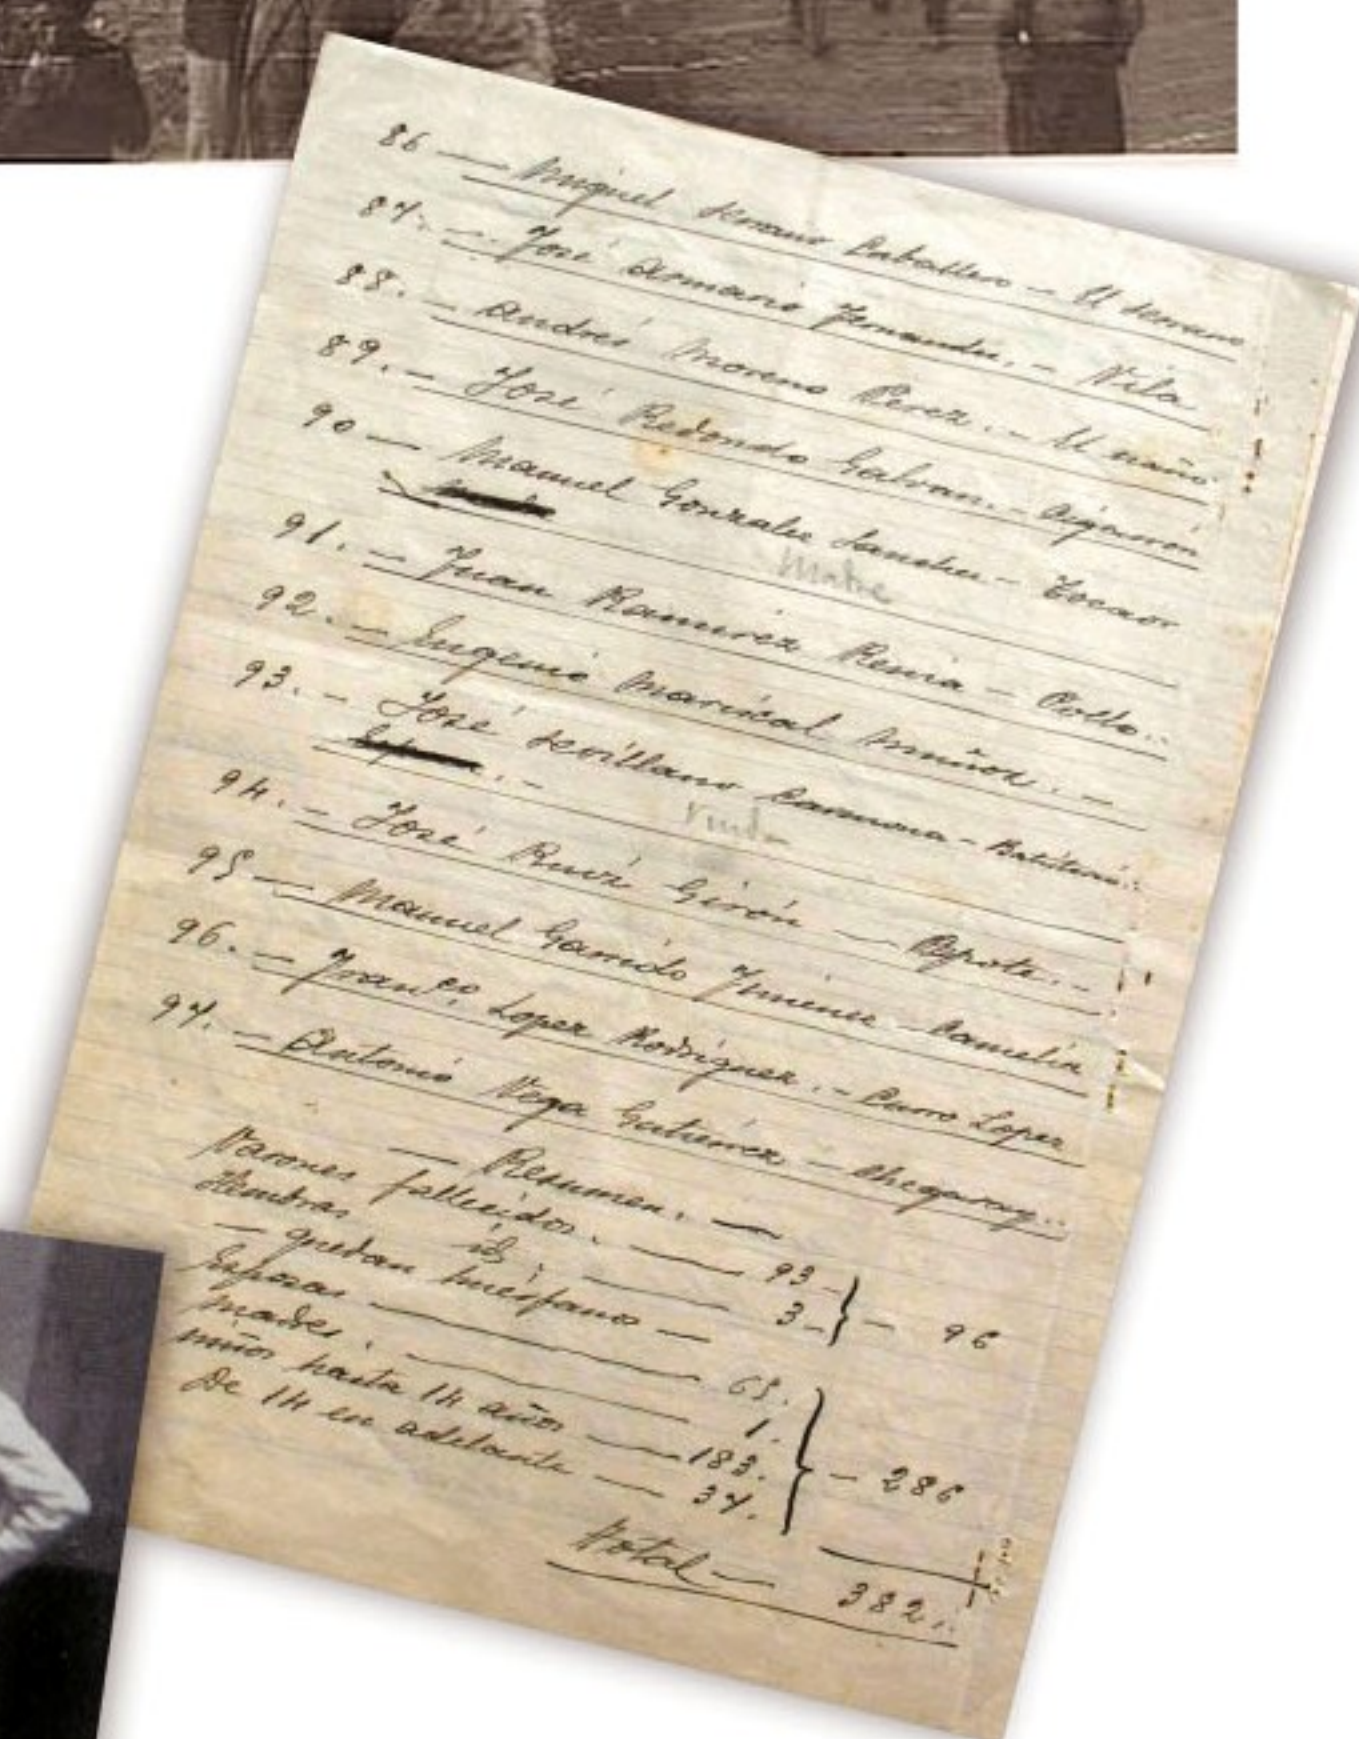 86 — Miguel Serrano Caballero — El Serrano
87. — José Armario Fernandez. — Vila
88. — Andrés Moreno Perez. — El
89. — José Redondo Galvan. —
90 — Manuel Gonzalez Sanchez — Tocaor
Madre
91. — Juan Ramirez Reina — Pollo..
92. — Eugenio Mariscal Muñoz. —
93. — José Sevillano Carmona —
Viuda
94. — José Ruiz Girón —
95 — Manuel Garrido Jimenez —
96. — Franco. Lopez Rodriguez. — Curro Lopez
97. — Antonio Vega Gutierrez —
— Resumen. —
Varones fallecidos. — 93 —
Hembras id. — 3 — } — 96
— quedan huérfanos —
Esposas — 65.
Madres. — 1.
niños hasta 14 años — 183. } — 286
De 14 en adelante — 37.
Total — 382..